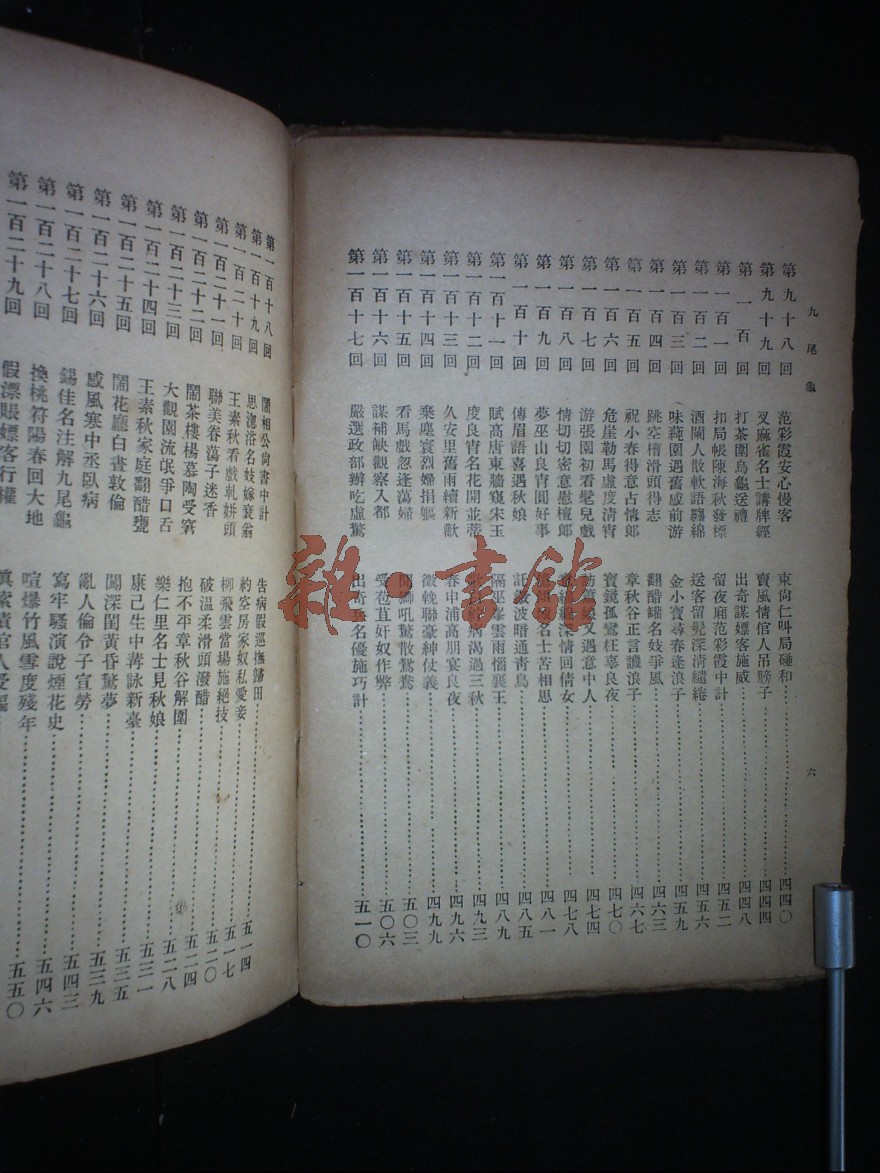 九尾龜
六
第九十八回 范彩霞安心慢客 東尙仁叫局碰和 四四〇
第九十九回 叉麻雀名士講牌經 賣風情倌人吊膀子 四四四
第一百回 打茶圍烏龜送禮 出奇謀嫖客施威 四四八
第一百一回 扣局帳陳海秋發標 留夜廂范彩霞中計 四五二
第一百二回 酒闌人散軟語纏綿 送客留髡深清繾綣 四五六
第一百三回 味蒓園遇舊感前游 金小寶尋春逢浪子 四五九
第一百四回 跳空槽滑頭得志 翻酷罐名妓爭風 四六三
第一百五回 祝小春得意占情郎 章秋谷正言譏浪子 四六七
第一百六回 危崖勒馬虛度淸宵 寶鏡孤鸞枉辜良夜 四七〇
第一百七回 游張園初看髦兒戲 訪 又遇意中人 四七四
第一百八回 情切切密意慰檀郎 深情回倩女 四七八
第一百九回 夢巫山良宵圓好事 名士苦相思 四八一
第一百十回 傳眉語喜遇秋娘 託微波暗通靑鳥 四八五
第一百十一回 賦高唐東牆窺宋玉 隔巫峯雲雨惱襄王 四八九
第一百十二回 度良宵名花開並蒂 病渴過三秋 四九三
第一百十三回 久安里舊雨續新歡 春申浦高朋宴良夜 四九六
第一百十四回 乘塵寰烈婦捐軀 徵輓聯豪紳仗義 四九九
第一百十五回 看馬戲忽逢蕩婦 獅吼驚散鴛鴦 五〇三
第一百十六回 謀補缺觀察入都 受苞苴奸奴作弊 五〇六
第一百十七回 嚴選政部辦吃虛驚 出奇兵名優施巧計 五一〇
第一百十八回 鬧相公尙書中計 告病假巡撫歸田 五一四
第一百十九回 思淴浴名妓嫁衰翁 約空房家奴私愛妾 五一七
第一百二十回 王素秋看戲軋姘頭 柳飛雲當場施絕技 五二〇
第一百二十一回 聯美春蕩子迷香 破溫柔滑頭潑醋 五二四
第一百二十二回 鬧茶樓楊慕陶受窘 抱不平章秋谷解圍 五二八
第一百二十三回 大觀園流氓爭口舌 樂仁里名士見秋娘 五三一
第一百二十四回 王素秋家庭翻醋甕 康己生中冓詠新臺 五三五
第一百二十五回 鬧花廳白晝敦倫 闖深閨黃昏驚夢 五三九
第一百二十六回 感風寒中丞臥病 亂人倫令子宣勞 五四三
第一百二十七回 錫佳名注解九尾龜 寫牢騷演說煙花史 五四六
第一百二十八回 換桃符陽春回大地 喧爆竹風雪度殘年 五五〇
第一百二十九回 假漂賬嫖客行權 眞索債倌人受騙
雜·書館